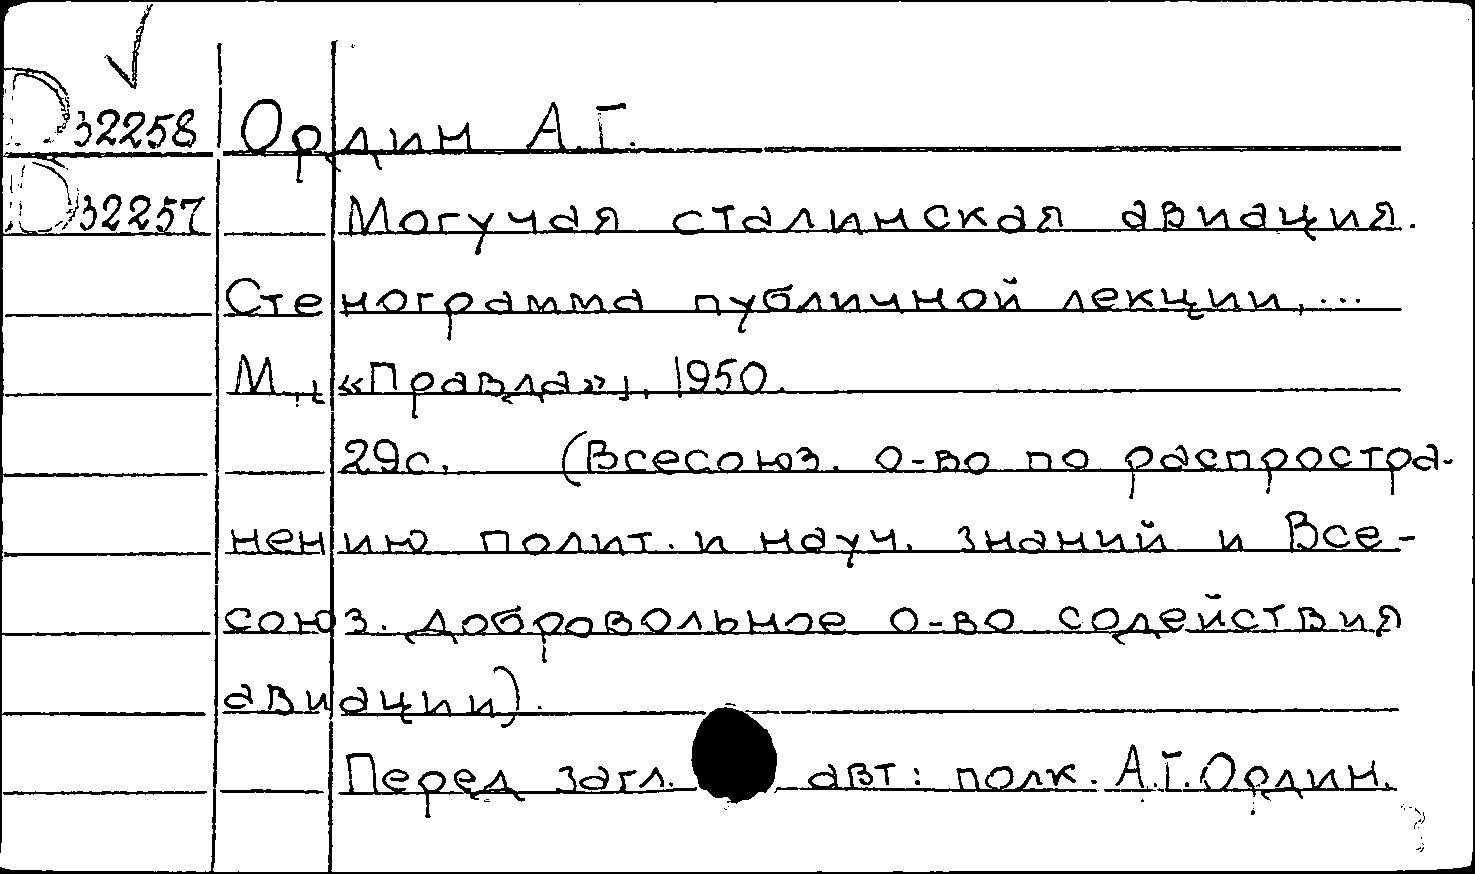 D 32258 Ордин А.Г.
D 32257 Могучая сталинская авиация.
Стенограмма публичной лекции,...
М., «Правда», 1950.
29с. (Всесоюз. о-во по распростра-
нению полит. и науч. знаний и Все-
союз. добровольное о-во содействия
авиации).
Перед загл. авт: полк. А.Г.Ордин.